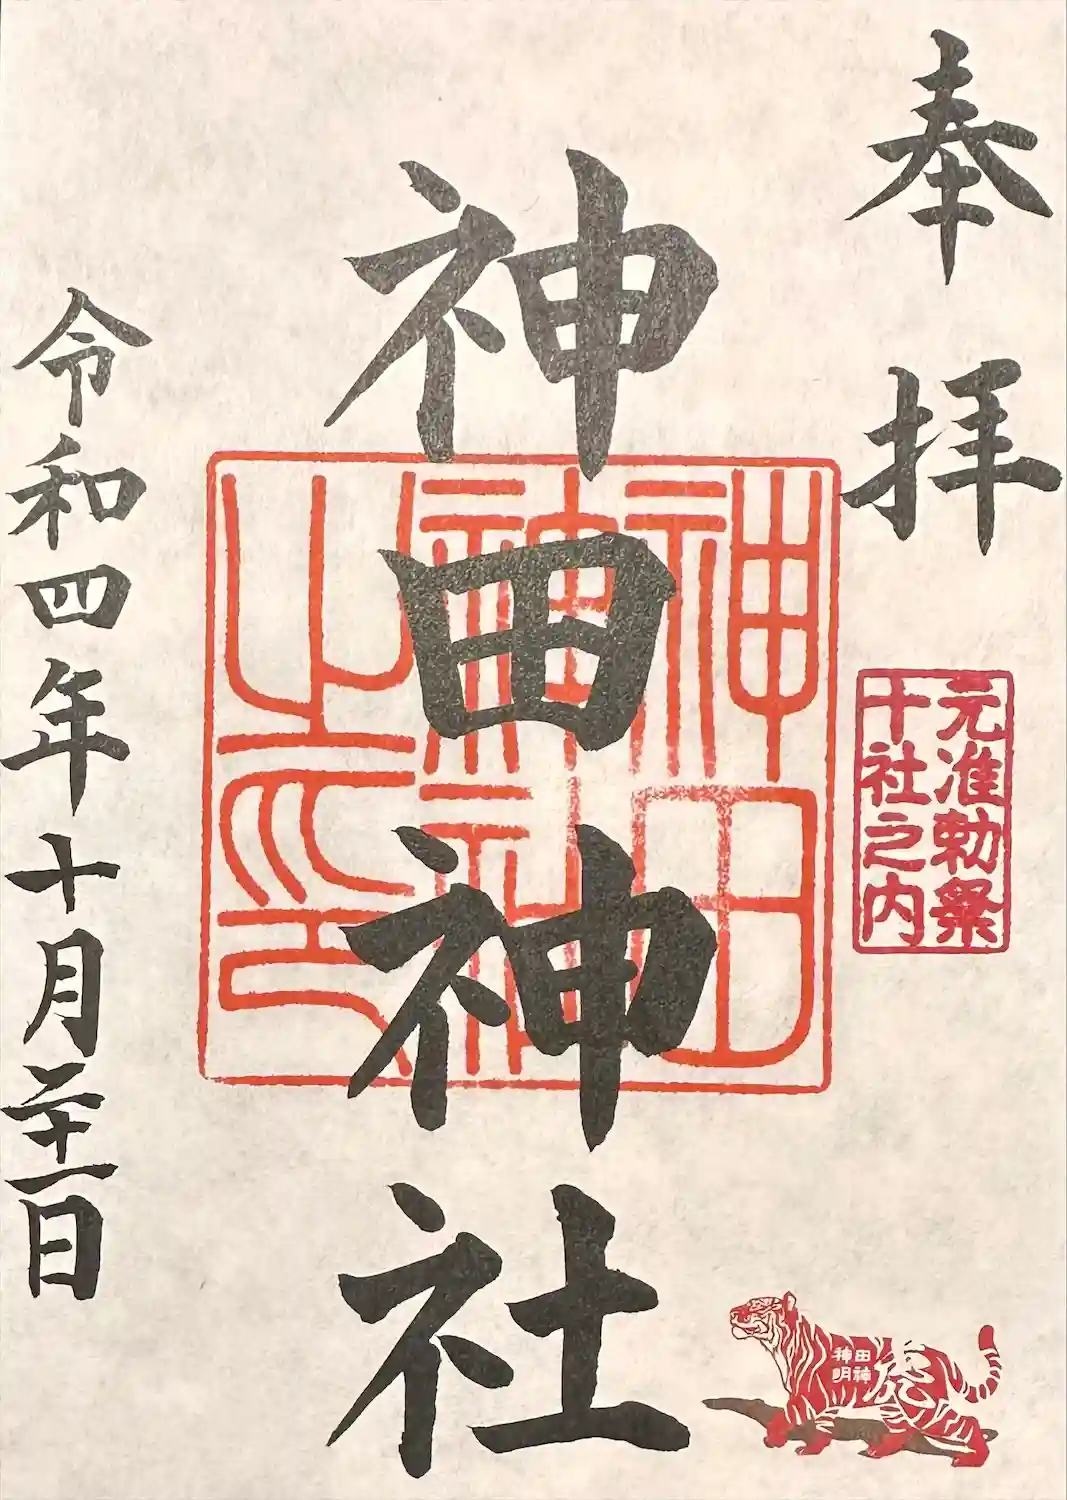 奉拝
元准勅祭
十社之内
神田神社
神田
神社
之印
令和四年十月二十一日
神田
明神
虎